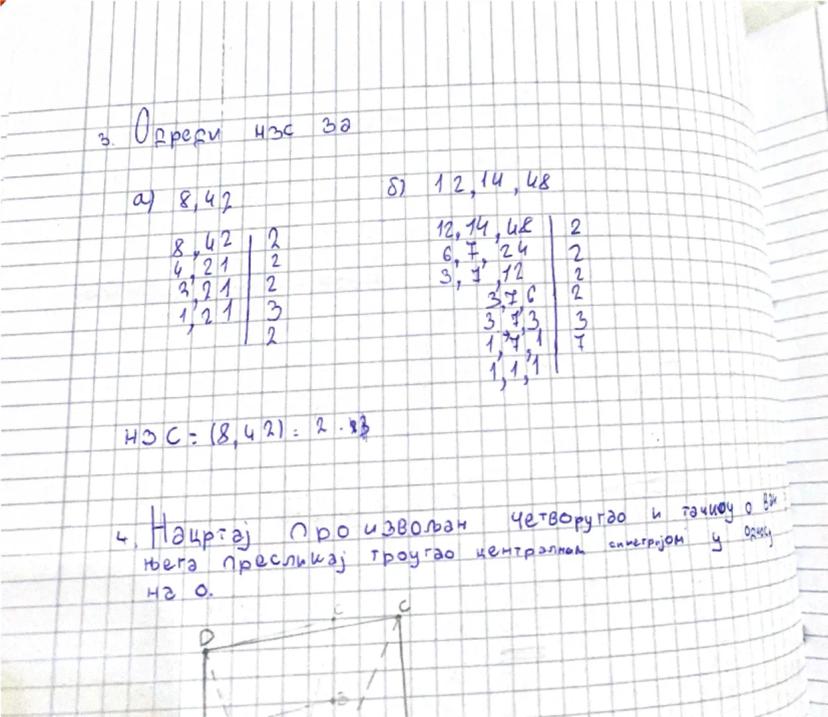 3. Одреди НЗС за
а) 8,42
8,42 | 2
4,21 | 2
3,21 | 2
1,21 | 3
, | 2
б) 12,14,48
12,14,48 | 2
6,7,24 | 2
3,7,12 | 2
3,7,6 | 2
3,7,3 | 3
1,7,1 | 7
1,1,1
НЗС = (8,42) = 2 ·
4. Нацртај произвољан четвороугао и тачку о ван
њега пресликај троугао централном симетријом у односу
на о.
C
D
B